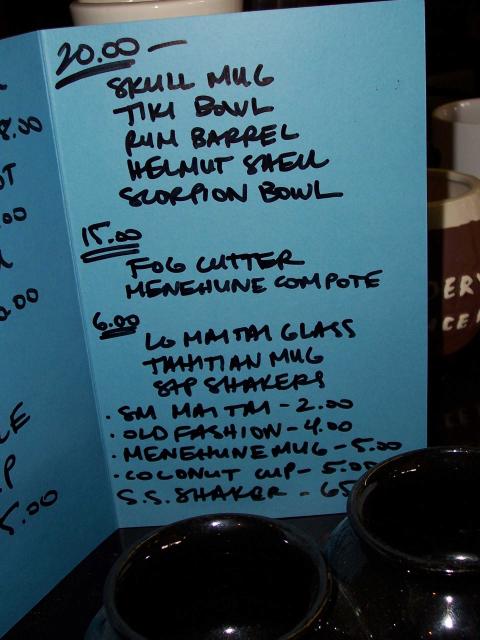 20.00 —
SKULL MUG
TIKI BOWL
RUM BARREL
HELMUT SHELL
SCORPION BOWL
15.00
FOG CUTTER
MENEHUNE COMPOTE
6.00
LG MAI TAI GLASS
TAHITIAN MUG
S&P SHAKERS
· SM MAI TAI - 2.00
· OLD FASHION - 4.00
· MENEHUNE MUG - 5.00
· COCONUT CUP - 5.00
S.S. SHAKER - 65
8.00
.00
5.00